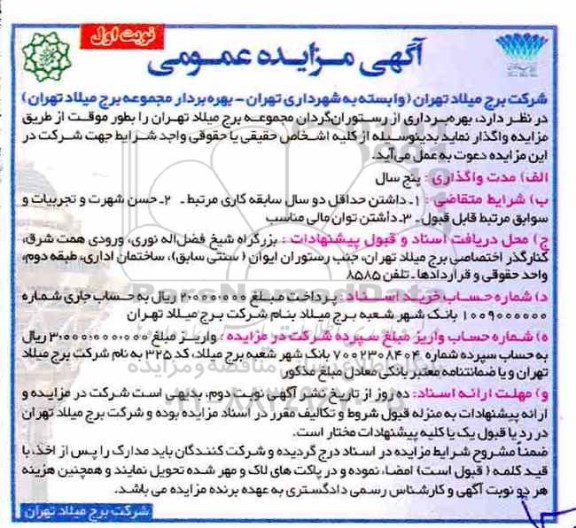 نوبت اول
آگهی مزایده عمومی
شرکت برج میلاد تهران (وابسته به شهرداری تهران - بهره بردار مجموعه برج میلاد تهران)
در نظر دارد، بهره‌برداری از رستوران‌گردان مجموعه برج میلاد تهران را بطور موقت از طریق
مزایده واگذار نماید بدینوسیله از کلیه اشخاص حقیقی یا حقوقی واجد شرایط جهت شرکت در
این مزایده دعوت به عمل می‌آید.
الف) مدت واگذاری : پنج سال
ب) شرایط متقاضی : ۱ـ داشتن حداقل دو سال سابقه کاری مرتبط ـ ۲ـ حسن شهرت و تجربیات و
سوابق مرتبط قابل قبول ـ ۳ـ داشتن توان مالی مناسب
ج) محل دریافت اسناد و قبول پیشنهادات : بزرگراه شیخ فضل‌اله نوری، ورودی همت شرق،
کنارگذر اختصاصی برج میلاد تهران، جنب رستوران ایوان ( سنتی سابق)، ساختمان اداری، طبقه دوم،
واحد حقوقی و قراردادها ـ تلفن ۸۵۸۵
د) شماره حساب خرید اسناد : پرداخت مبلغ ۲،۰۰۰،۰۰۰ ریال به حساب جاری شماره
۱۰۰۹۰۰۰۰۰۰ بانک شهر شعبه برج میلاد بنام شرکت برج میلاد تهران
ه) شماره حساب واریز مبلغ سپرده شرکت در مزایده : واریز مبلغ ۳،۰۰۰،۰۰۰،۰۰۰ ریال
به حساب سپرده شماره ۷۰۰۲۳۰۸۴۰۴ بانک شهر شعبه برج میلاد، کد ۳۲۵ به نام شرکت برج میلاد
تهران و یا ضمانتنامه معتبر بانکی معادل مبلغ مذکور
و) مهلت ارائه اسناد: ده روز از تاریخ نشر آگهی نوبت دوم، بدیهی است شرکت در مزایده و
ارائه پیشنهادات به منزله قبول شروط و تکالیف مقرر در اسناد مزایده بوده و شرکت برج میلاد تهران
در رد یا قبول یک یا کلیه پیشنهادات مختار است.
ضمناً مشروح شرایط مزایده در اسناد درج گردیده و شرکت کنندگان باید مدارک را پس از اخذ، با
قید کلمه ( قبول است) امضاء نموده و در پاکت های لاک و مهر شده تحویل نمایند و همچنین هزینه
هر دو نوبت آگهی و کارشناس رسمی دادگستری به عهده برنده مزایده می باشد.
شرکت برج میلاد تهران